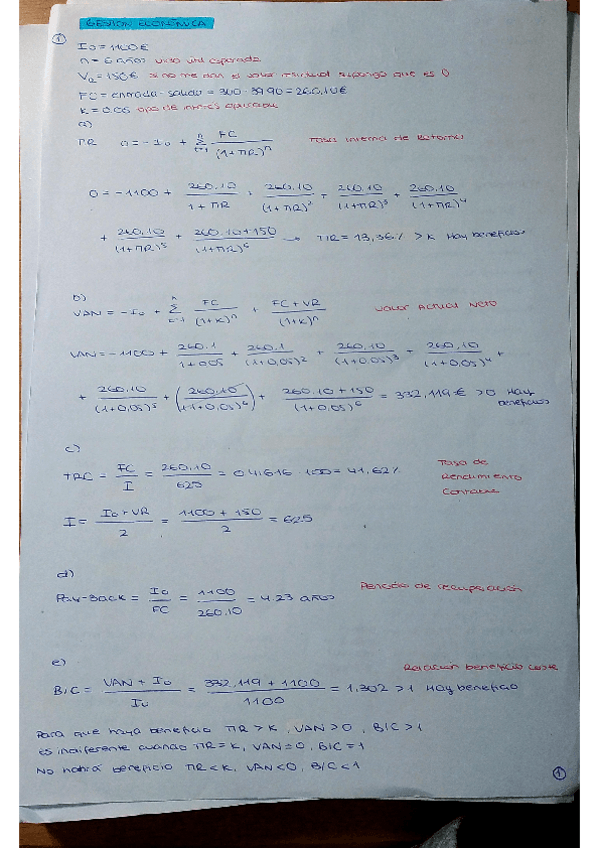 GESTIÓN ECONÓMICA
①
I₀ = 1100€
n = 6 años vida útil esperada
V_R = 150€ si no me dan el valor residual supongo que es 0
FC = entrada - salida = 300 - 39.90 = 260,10€
K = 0.05 tipo de interés
a)
TIR 0 = -I₀ + Σ FC / (1+TIR)ⁿ Tasa interna de Retorno
0 = -1100 + 260.10 / (1+TIR) + 260.10 / (1+TIR)² + 260.10 / (1+TIR)³ + 260.10 / (1+TIR)⁴
+ 260.10 / (1+TIR)⁵ + 260.10+150 / (1+TIR)⁶ → TIR = 13,36% > K Hay beneficios
b)
VAN = -I₀ + Σ FC / (1+K)ⁿ + FC+VR / (1+K)ⁿ Valor Actual Neto
VAN = -1100 + 260.1 / 1+0.05 + 260.1 / (1+0,05)² + 260,10 / (1+0.05)³ + 260,10 / (1+0,05)⁴ +
+ 260.10 / (1+0,05)⁵ + (260,10 / (1+0,05)⁶) + 260.10+150 / (1+0.05)⁶ = 332,119€ > 0 Hay beneficios
c)
TRC = FC / I = 260.10 / 625 = 0.41616 · 100 = 41,62% Tasa de Rendimiento Contable
I = I₀ + VR / 2 = 1100 + 150 / 2 = 625
d)
Pay-Back = I₀ / FC = 1100 / 260.10 = 4.23 años Periodo de recuperación
e)
B/C = VAN + I₀ / I₀ = 332,119 + 1100 / 1100 = 1.302 > 1 Hay beneficio Relación beneficio coste
Para que haya beneficio TIR > K, VAN > 0, B/C > 1
es indiferente cuando TIR = K, VAN = 0, B/C = 1
No habrá beneficio TIR < K, VAN < 0, B/C < 1
①